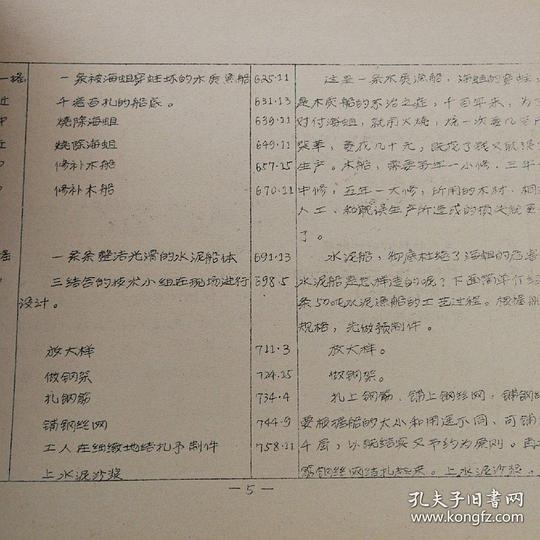 一摇 一条被海蛆穿蛀坏的木质渔船 625.11 这是一条木质渔船，海蛆的
近 千疮百孔的船底。 631.13 是木质船的不治之症，千百年来，为了
中 烧除海蛆 639.11 对付海蛆，就用火烧，烧一次要几百斤
近 烧除海蛆 649.11 柴草，要花几十元，既花了钱又耽误
修补木船 657.15 生产。木船，需要每年一小修，三年一
修补木船 670.11 中修，五年一大修，所用的木材、桐
人工，和耽误生产所造成的损失就更
了。
摇 一条条整洁光滑的水泥船体 691.13 水泥船，彻底杜绝了海蛆的危害
三结合的技术小组在现场进行 698.5 水泥船是怎样造的呢？下面简单介绍
设计。 条50吨水泥渔船的工艺过程。根据船
规格，先做预制件。
放大样 711.3 放大样。
做钢架 724.15 做钢架。
扎钢筋 734.4 扎上钢筋，铺上钢丝网，铺钢丝
铺钢丝网 744.9 要根据船的大小和用途不同，可铺
工人在细缴地结扎予制件 758.11 千层，以既结实又节约为原则。
上水泥沙浆 钢丝网结扎起来。上水泥沙浆。
—5—
孔夫子旧书网
www.kongfz.com